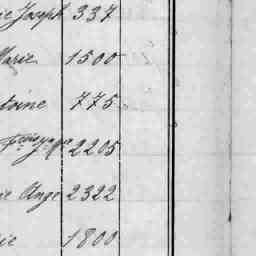 ie Joseph 337
Marie 1500
toine 775
2205
ie Ange 2322
ie 1800